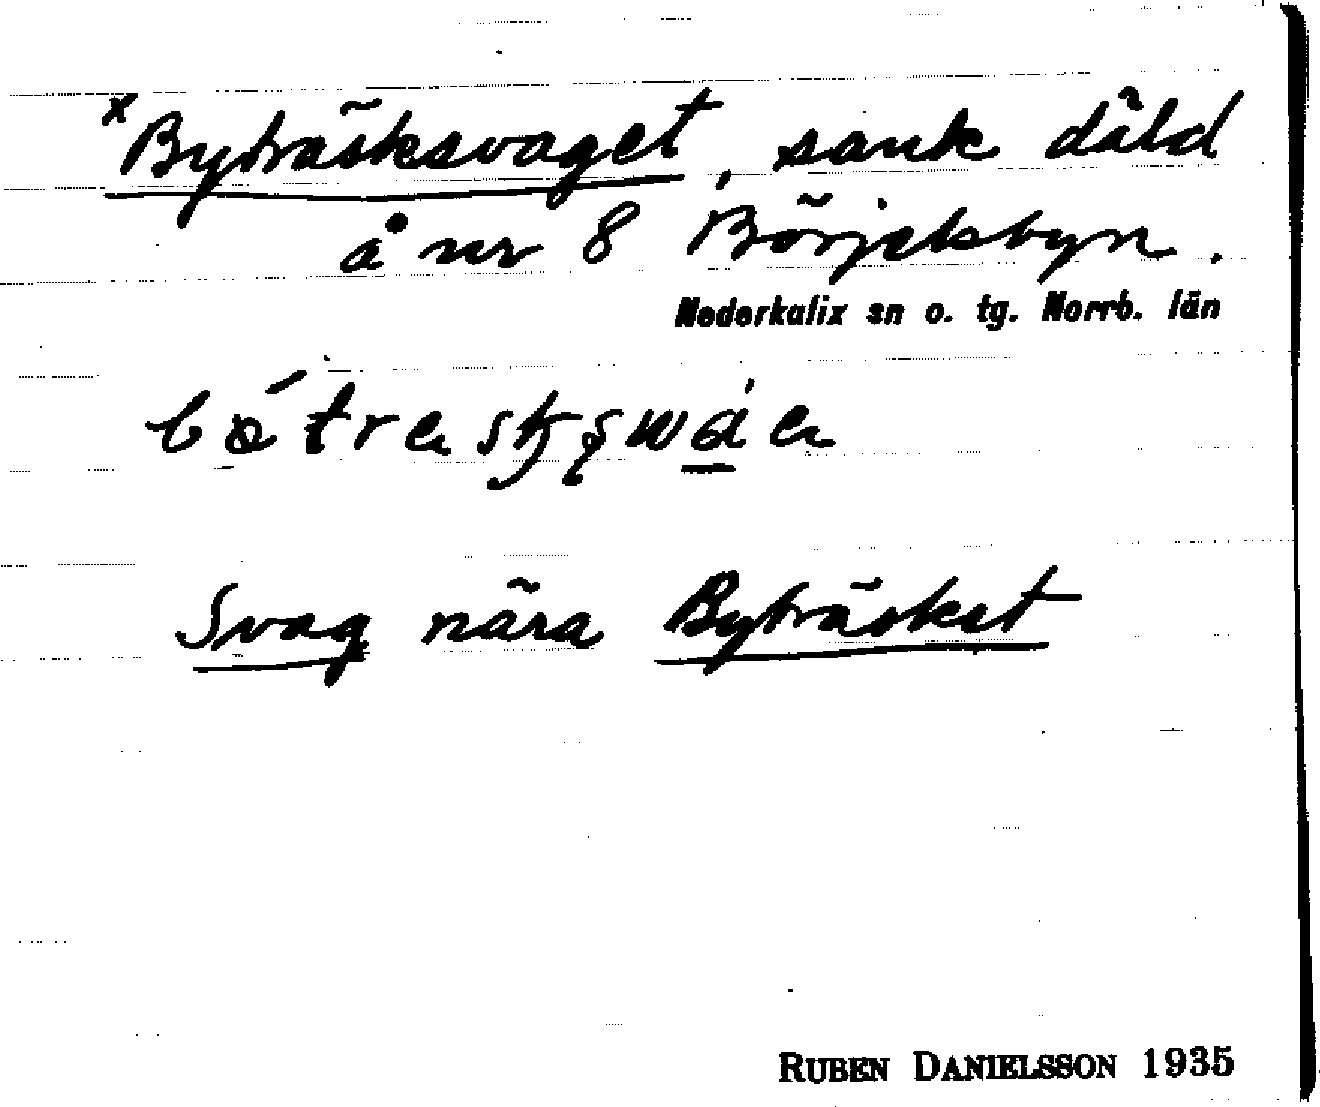 x Byträsksvaget, sank däld
å nr 8 Börjelsbyn.
Nederkalix sn o. tg. Norrb. län
Svag nära Byträsket
RUBEN DANIELSSON 1935